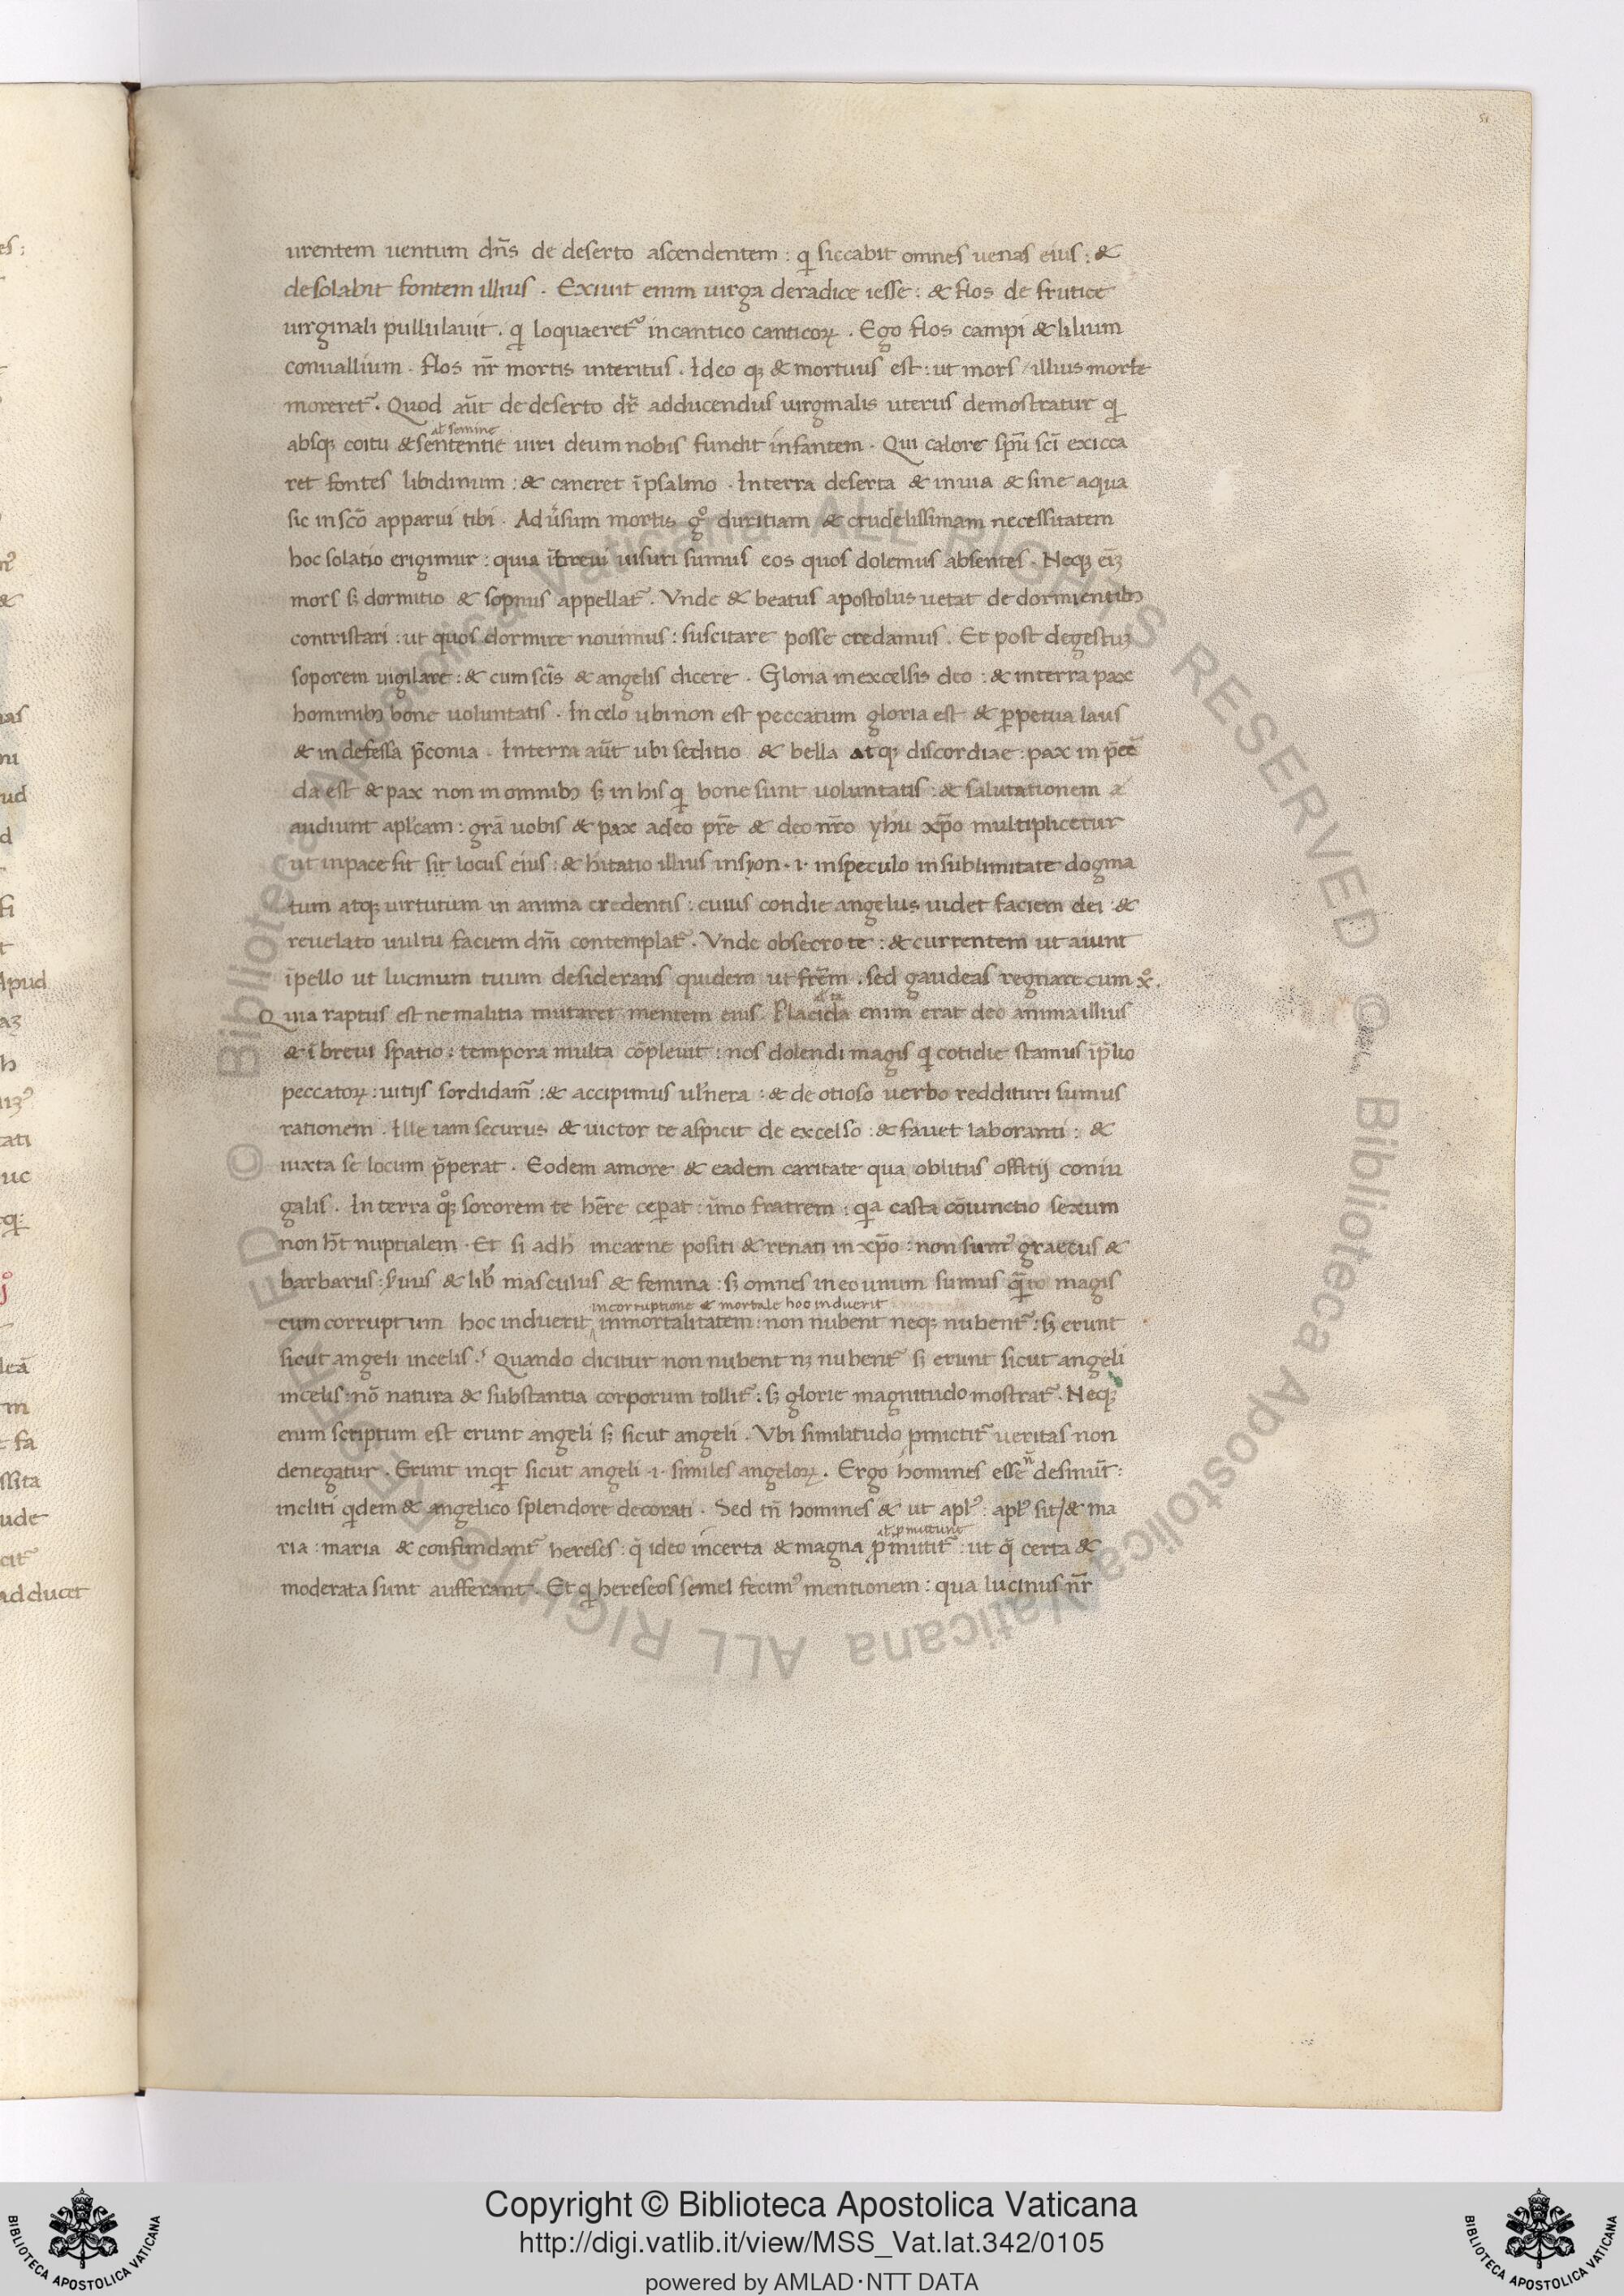 51
urentem uentum dñs de deserto ascendentem : q siccabit omnes uenas eius : &
desolabit fontem illius . Exiuit enim uirga deradice iesse : & flos de frutice
uirginali pullulauit . q loquaeret᷑ incantico canticoꝝ . Ego flos campi & lilium
conuallium . flos nr̃ mortis interitus . Ideo qꝫ & mortuus est : ut mors illius morte
moreret᷑ . Quod aūt de deserto dr̃ adducendus uirginalis uterus demostratur q
al semine
absqꝫ coitu & sententie uiri deum nobis fundit infantem . Qui calore spū sci exicca
ret fontes libidinum : & caneret ĩpsalmo . Interra deserta & inuia & sine aqua
sic insc̃o apparui tibi . Adũsum mortis gͦ duritiam & crudelissimam necessitatem
hoc solatio erigimur : quia ĩbreui uisuri sumus eos quos dolemus absentes . Neqꝫ eĩꝫ
mors sꝫ dormitio & sopnus appellat᷑ . Vnde & beatus apostolus uetat de dormientibꝫ
contristari : ut quos dormire nouimus : suscitare posse credamus . Et post degestuꝫ
soporem uigilare : & cum scĩs & angelis dicere . Gloria inexcelsis deo : & interra pax
hominibꝫ bone uoluntatis . In celo ubi non est peccatum gloria est & ꝑpetua laus
& indefessa p̃conia . Interra aūt ubi seditio & bella atqꝫ discordiae : pax in p̃cẽ
da est & pax non in omnibꝫ sꝫ in his q bone sunt uoluntatis : & salutationem
audiunt apl̃cam : grã uobis & pax adeo pr̃e & deo nr̃o yhũ xp̃o multiplicetur
ut inpace sit sit locus eius : & hitatio illius insyon . i . inspeculo insublimitate dogma
tum atqꝫ uirtutum in anima credentis : cuius cotidie angelus uidet faciem dei : &
reuelato uultu faciem dñi contemplat᷑ . Vnde obsecro te : & currentem ut aiunt
ĩpello ut lucinum tuum desiderans quidem ut fr̃em . sed gaudeas regnare cum xͦ .
Quia raptus est ne malitia mutaret mentem eius . Placida enim erat deo anima illius
& ĩ breui spatio : tempora multa cõpleuit : nos dolendi magis q cotidie stamus ĩp̃lio
peccatoꝝ : uitijs sordidam̃ : & accipimus ul̃nera : & de otioso uerbo reddituri sumus
rationem . Ille iam securus & uictor te aspicit de excelso : & fauet laboranti : &
iuxta se locum p̃perat . Eodem amore & eadem caritate qua oblitus offitij coniu
galis . In terra qͦqꝫ sororem te hẽre ceperat : ĩmo fratrem : qa casta cõiunctio sexum
non ht̃ nuptialem . Et si adh̃ incarne positi & renati in xp̃o : non sum᷒ graecus &
barbarus : s̃uus & lib̃ masculus & femina : sꝫ omnes ineo unum sumus q̃to magis
incorruptione & mortale hoc induerit
cum corruptum hoc induerit inmortalitatem : non nubent neqꝫ nubent᷑ : sꝫ erunt
sicut angeli incelis . Quando dicitur non nubent nꝫ nubent᷑ sꝫ erunt sicut angeli
incelis : nõ natura & substantia corporum tollit᷑ : sꝫ glorie magnitudo mostrat᷑ . Neqꝫ
enim scriptum est erunt angeli sꝫ sicut angeli . Vbi similitudo ꝓmictit᷑ ueritas non
denegatur . Erunt inqt sicut angeli . i . similes angeloꝝ . Ergo homines esse ñ desinũt :
incliti qdem & angelico splendore decorati . Sed tñ homines & ut apl᷒ : apl᷒ sit & ma
al ꝓmittunt
ria : maria & confundant᷑ hereses : q̃ ideo incerta & magna ꝓmitit᷑ : ut q̃ certa &
moderata sunt aufferant . Et q hereseos semel fecim᷒ mentionem : qua lucinus nr̃
Copyright © Biblioteca Apostolica Vaticana
http://digi.vatlib.it/view/MSS_Vat.lat.342/0105
powered by AMLAD·NTT DATA
BIBLIOTECA APOSTOLICA VATICANA
BIBLIOTECA APOSTOLICA VATICANA
© Biblioteca Apostolica Vaticana ALL RIGHTS RESERVED © Biblioteca Apostolica Vaticana ALL RIGHTS RESERVED